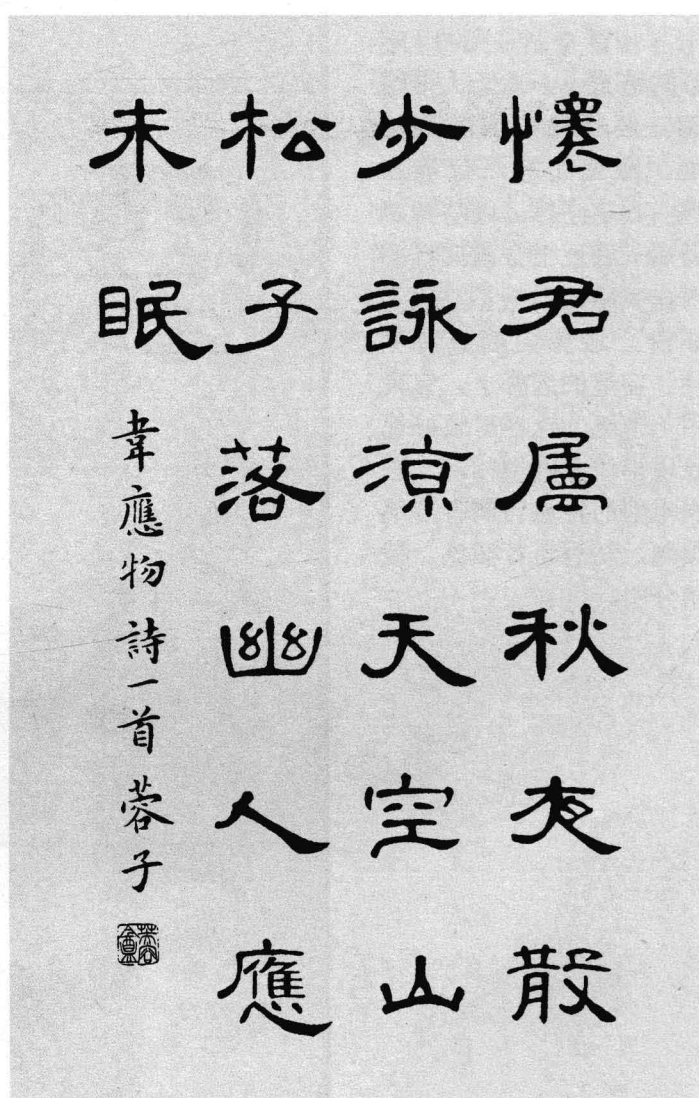 懷君屬秋夜散
步詠涼天空山
松子落幽人應
未眠
韋應物詩一首 蓉子